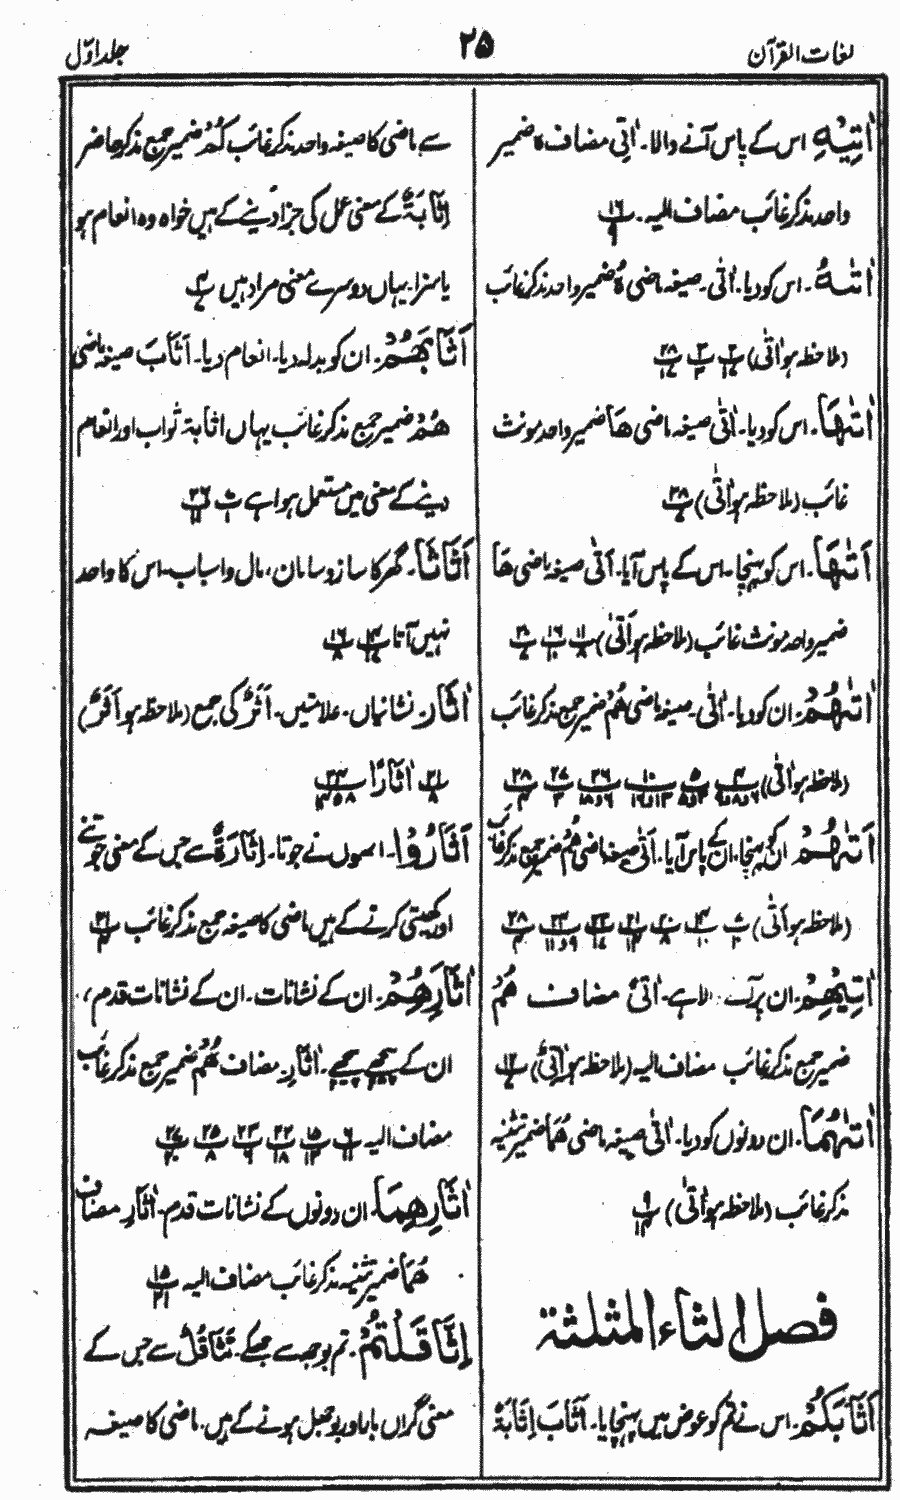 لغات القرآن
۲۵
جلد اوّل
اٰتِیْہِ اس کے پاس آنے والا۔ اٰتِی مضاف ہ ضمیر
واحد مذکر غائب مضاف الیہ۔ پ۱۶
اٰتٰہُ۔ اس کو دیا۔ اٰتٰی۔ صیغہ ماضی ہُ ضمیر واحد مذکر غائب
(ملاحظہ ہو اٰتٰی)
اٰتٰہَا۔ اس کو دیا۔ اٰتٰی صیغہ ماضی ھَا ضمیر واحد مونث
غائب (ملاحظہ ہو اٰتٰی) پ۲۸
اَتٰہَا۔ اس کو پہنچا۔ اس کے پاس آیا۔ اَتٰی صیغہ ماضی ھَا
ضمیر واحد مونث غائب (ملاحظہ ہو اَتٰی)
اٰتٰہُمْ۔ ان کو دیا۔ اٰتٰی۔ صیغہ ماضی ھُمْ ضمیر جمع مذکر غائب
(ملاحظہ ہو اٰتٰی)
اَتٰہُمْ ان کو پہنچا۔ ان کے پاس آیا۔ اَتٰی صیغہ ماضی ھُمْ ضمیر جمع مذکر غائب
(ملاحظہ ہو اَتٰی)
اٰتِیْہِمْ۔ ان پر آنے والا ہے۔ اٰتِیْ مضاف ھُمْ
ضمیر جمع مذکر غائب مضاف الیہ (ملاحظہ ہو اٰتِیْ) پ۱۲
اٰتٰہُمَا۔ ان دونوں کو دیا۔ اٰتٰی صیغہ ماضی ھُمَا ضمیر تثنیہ
مذکر غائب (ملاحظہ ہو اٰتٰی) پ۹
فصل الثاء المثلثۃ
اَثَابَکُمْ۔ اس نے تم کو عوض میں پہنچایا۔ اَثَابَ اِثَابَۃً
سے ماضی کا صیغہ واحد مذکر غائب کُمْ ضمیر جمع مذکر حاضر
اِثَابَۃٌ کے معنی عمل کی جزا دینے کے ہیں خواہ وہ انعام ہو
یا سزا۔ یہاں دوسرے معنی مراد ہیں پ۴
اَثَابَھُمْ۔ ان کو بدلہ دیا۔ انعام دیا۔ اَثَابَ صیغہ ماضی
ھُمْ ضمیر جمع مذکر غائب یہاں اثابۃ ثواب اور انعام
دینے کے معنی میں مستعمل ہوا ہے
اَثَاثًا۔ گھر کا ساز و سامان، مال و اسباب۔ اس کا واحد
نہیں آتا
اٰثَارِ۔ نشانیاں۔ علامتیں۔ اَثَرٌ کی جمع (ملاحظہ ہو اَثَرٌ)
اٰثَارًا
اَثَارُوْا۔ انہوں نے جوتا۔ اِثَارَۃٌ سے جس کے معنی جوتنے
اور کھیتی کرنے کے ہیں ماضی کا صیغہ جمع مذکر غائب پ۲۱
اٰثَارِھِمْ۔ ان کے نشانات۔ ان کے نشانات قدم،
ان کے پیچھے پیچھے۔ اٰثَارِ۔ مضاف ھُمْ ضمیر جمع مذکر غائب
مضاف الیہ
اٰثَارِھِمَا۔ ان دونوں کے نشانات قدم۔ اٰثَارِ مضاف
ھُمَا ضمیر تثنیہ مذکر غائب مضاف الیہ پ۱۵
اِثَّاقَلْتُمْ۔ تم بوجھ سے جھکے۔ تَثَاقُلٌ سے جس کے
معنی گراں بار اور بوجھل ہونے کے ہیں۔ ماضی کا صیغہ